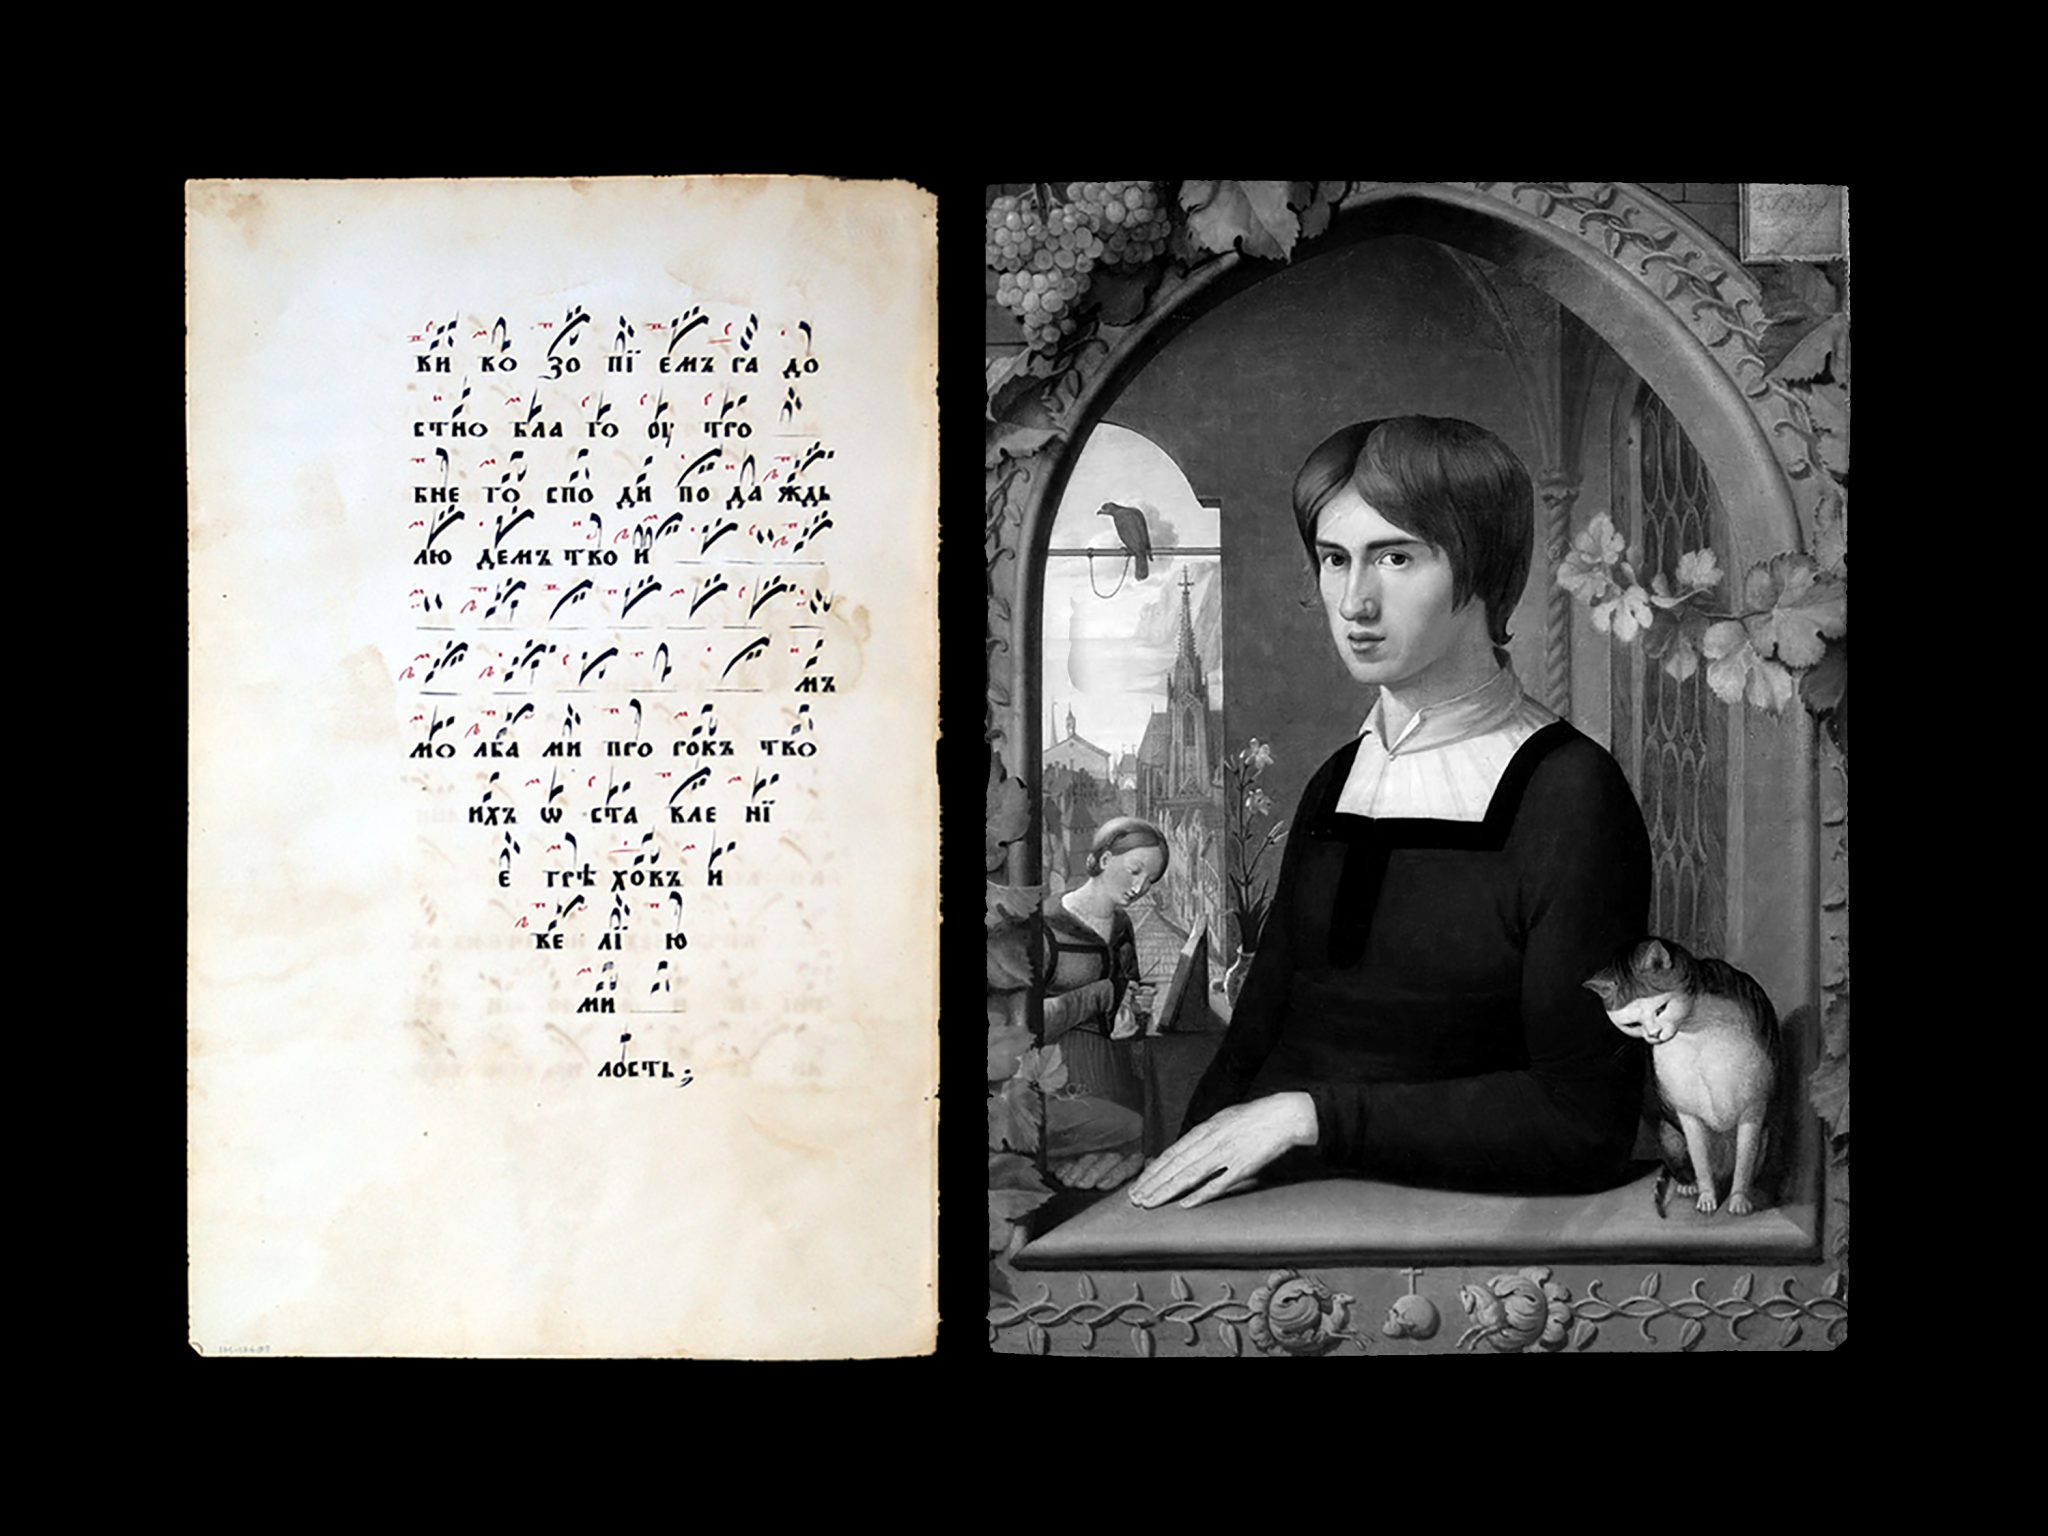 ви во зо пї емъ ра до
стно бла го оу тро
бне го спо ди по да ждь
лю демъ тво и
мъ
мо лба ми про рокъ тво
ихъ ѡ ста вле нї
є грѣ ховъ и
ве лї ю
ми
лость;